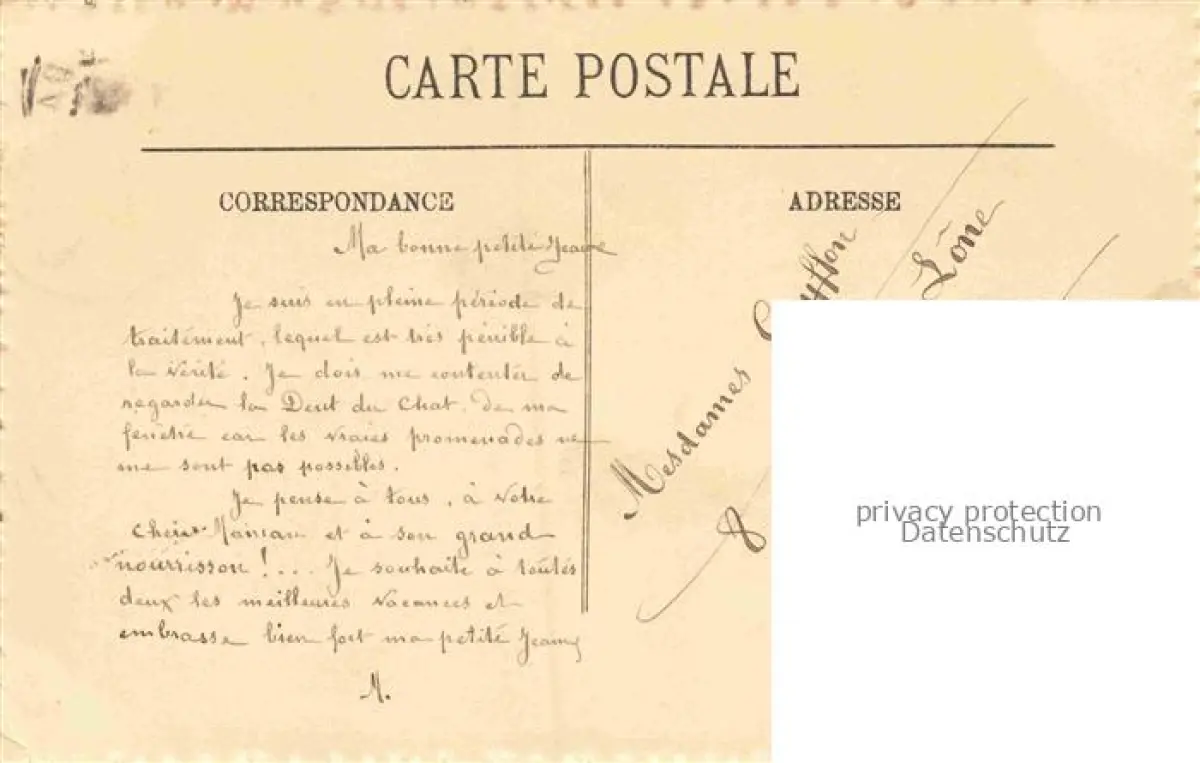 CARTE POSTALE
CORRESPONDANCE
ADRESSE
Ma bonne petite Jeanne
Je suis en pleine période de
traitement, lequel est très pénible à
la vérité. Je dois me contenter de
regarder la Dent du Chat, de ma
fenêtre car les vraies promenades ne
me sont pas possibles.
Je pense à tous, à votre
chère Maman et à son grand
nourrisson !... Je souhaite à toutes
deux les meilleures vacances et
embrasse bien fort ma petite Jeanne
M.
Mesdames
8
privacy protection
Datenschutz